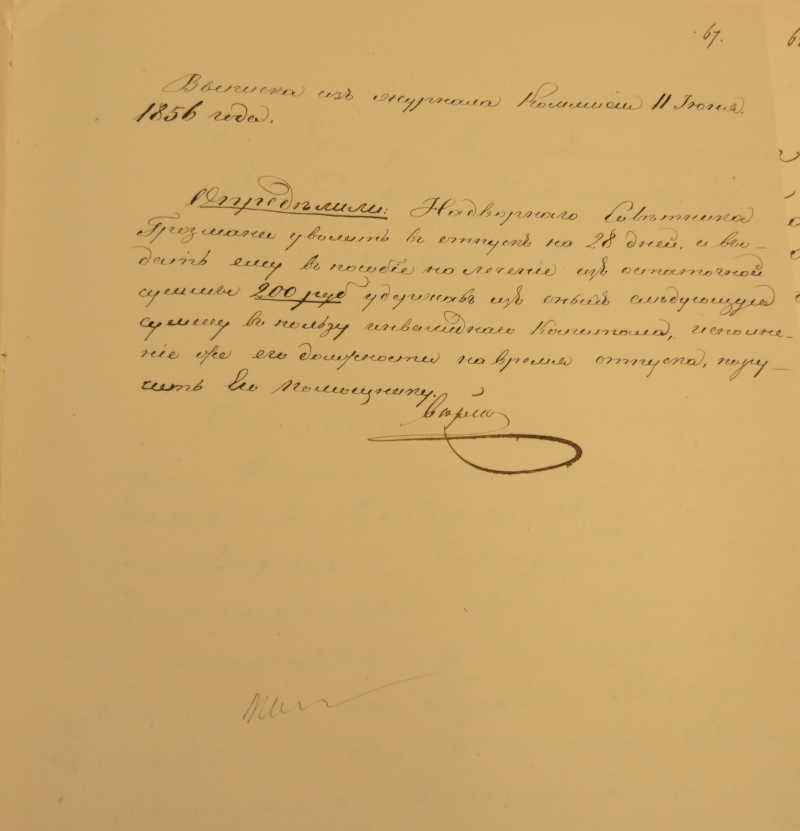 67.
Выписка изъ журнала Коммисіи 11 Іюня
1856 года.
Опредѣлили: Надворнаго Совѣтника
Грозмани уволить въ отпускъ на 28 дней, и вы-
дать ему въ пособіе на леченіе изъ остаточной
суммы 200 руб удержавъ изъ оныхъ слѣдующую
сумму въ пользу инвалиднаго Капитала, исполне-
ніе же его должности на время отпуска, пору-
чить Его Помощнику.